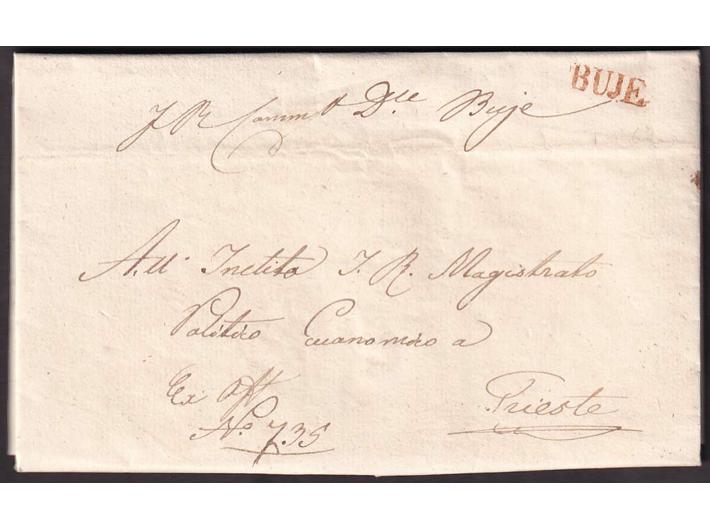 BUJE
I R Comm o D.le Buje
All' Inclito I. R. Magistrato
Politico Economico a
Ex Off
No 735
Trieste